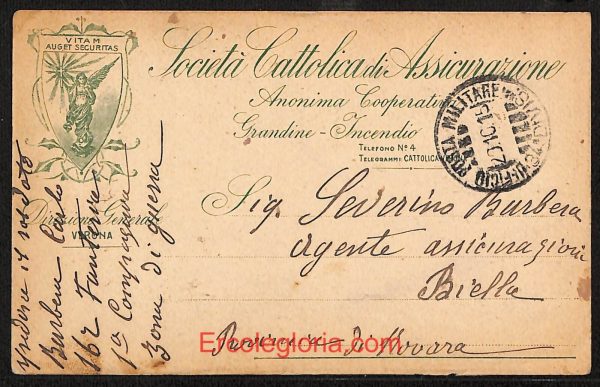 VITAM
AUGET SECURITAS
Società Cattolica di Assicurazione
Anonima Cooperativa
Grandine - Incendio
TELEFONO N° 4
TELEGRAMMI: CATTOLICA
Direzione Generale
VERONA
UFFICIO POSTA MILITARE
20.10.15
Sig. Severino Barbera
Agente assicurazioni
Biella
Provincia di Novara
Ercolegloria.com
spedisce il soldato
Barbera Carlo
162 Fanteria
1a Compagnia
Zona di guerra